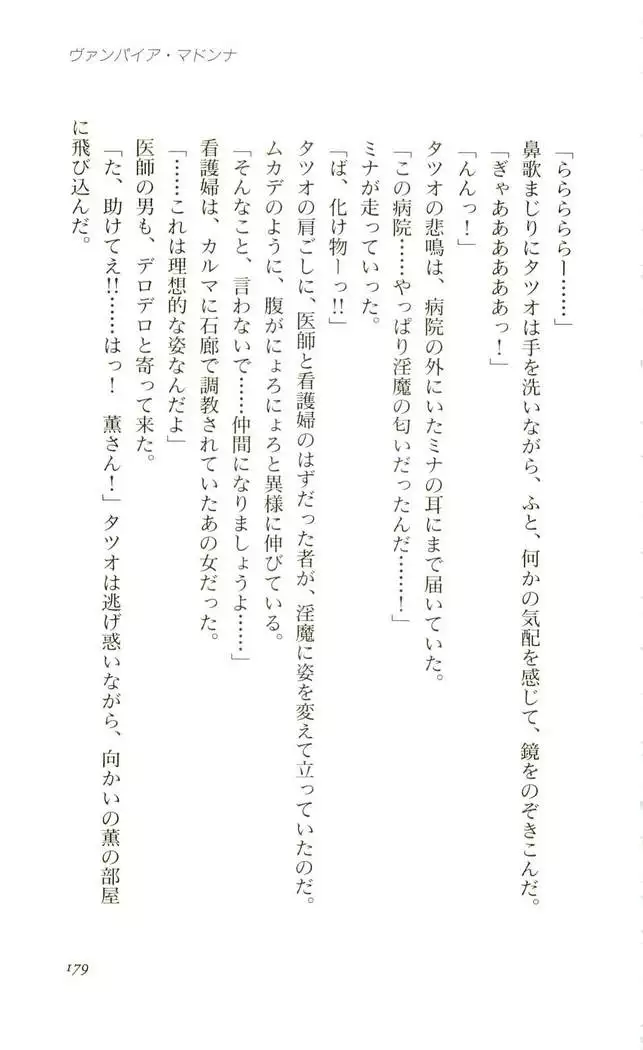 ヴァンパイア・マドンナ
「らららららー……」
鼻歌まじりにタツオは手を洗いながら、ふと、何かの気配を感じて、鏡をのぞきこんだ。
「ぎゃああああああっ！」
「んんっ！」
タツオの悲鳴は、病院の外にいたミナの耳にまで届いていた。
「この病院……やっぱり淫魔の匂いだったんだ……！」
ミナが走っていった。
「ば、化け物ーっ!!」
タツオの肩ごしに、医師と看護婦のはずだった者が、淫魔に姿を変えて立っていたのだ。
ムカデのように、腹がにょろにょろと異様に伸びている。
「そんなこと、言わないで……仲間になりましょうよ……」
看護婦は、カルマに石廊で調教されていたあの女だった。
「……これは理想的な姿なんだよ」
医師の男も、デロデロと寄って来た。
「た、助けてえ!!……はっ！　薫さん！」タツオは逃げ惑いながら、向かいの薫の部屋
に飛び込んだ。
179